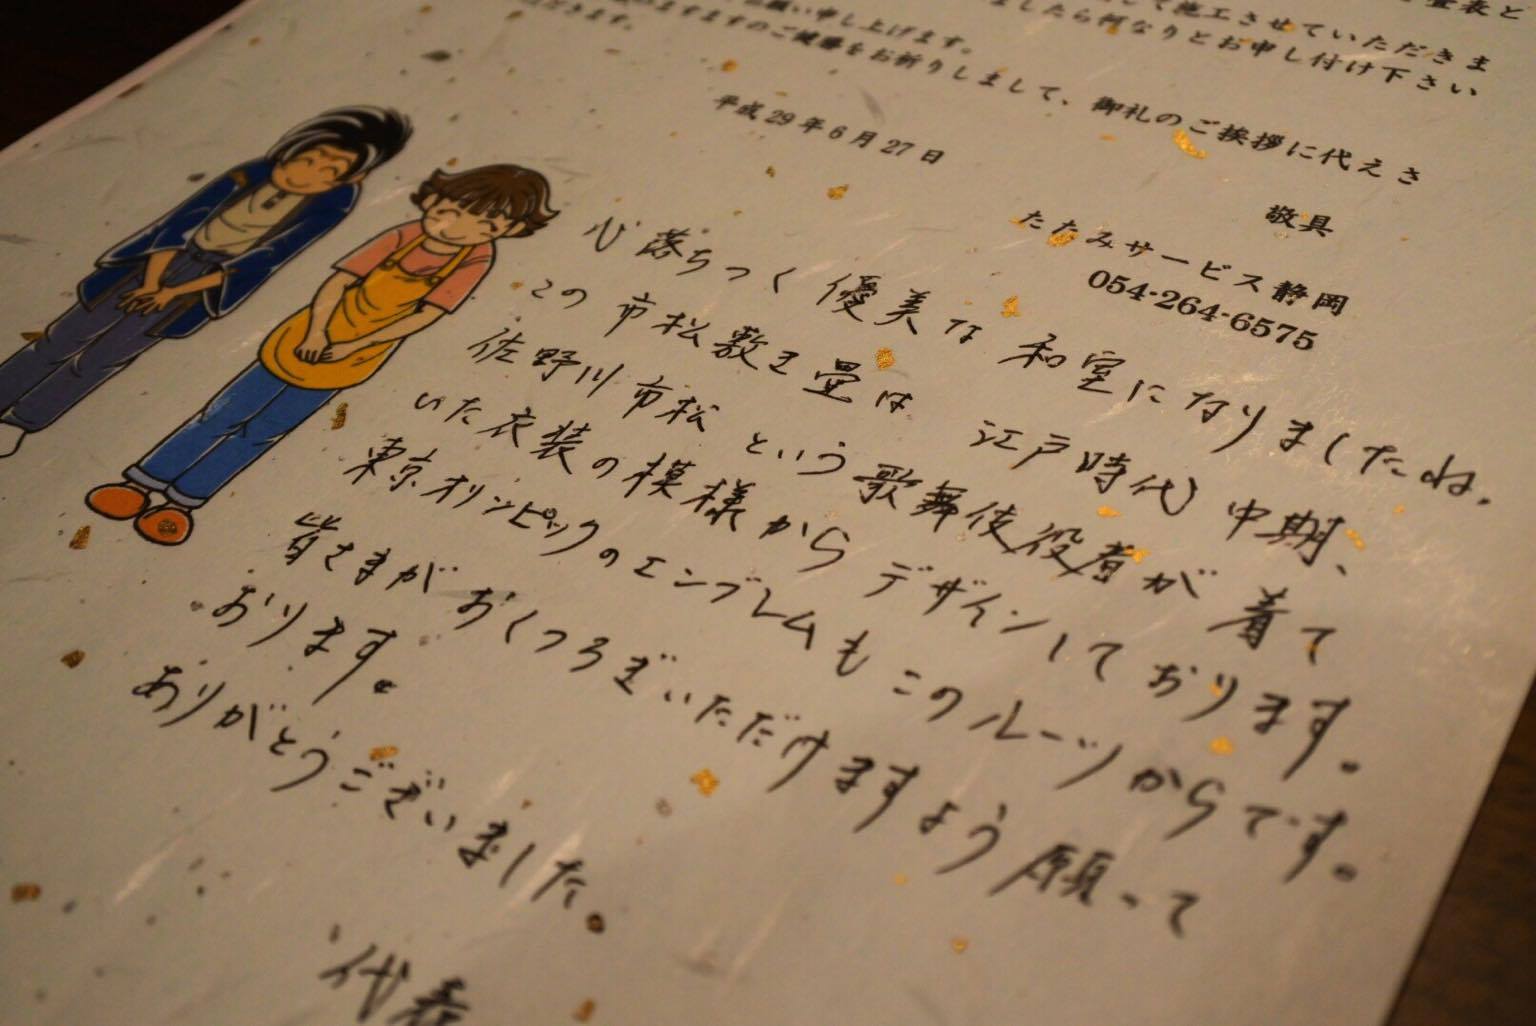 畳表と
して施工させていただきま
ましたら何なりとお申し付け下さい
お願い申し上げます。
ますますのご健勝をお祈りしまして、御礼のご挨拶に代えさ
だきます。
平成29年6月27日
敬具
たたみサービス静岡
054-264-6575
心落ちつく優美な和室になりましたね。
この市松敷き畳は江戸時代中期、
佐野川市松という歌舞伎役者が着て
いた衣装の模様からデザインしております。
東京オリンピックのエンブレムもこのルーツからです。
皆さまがおくつろぎいただけますよう願って
おります。
ありがとうございました。
代表